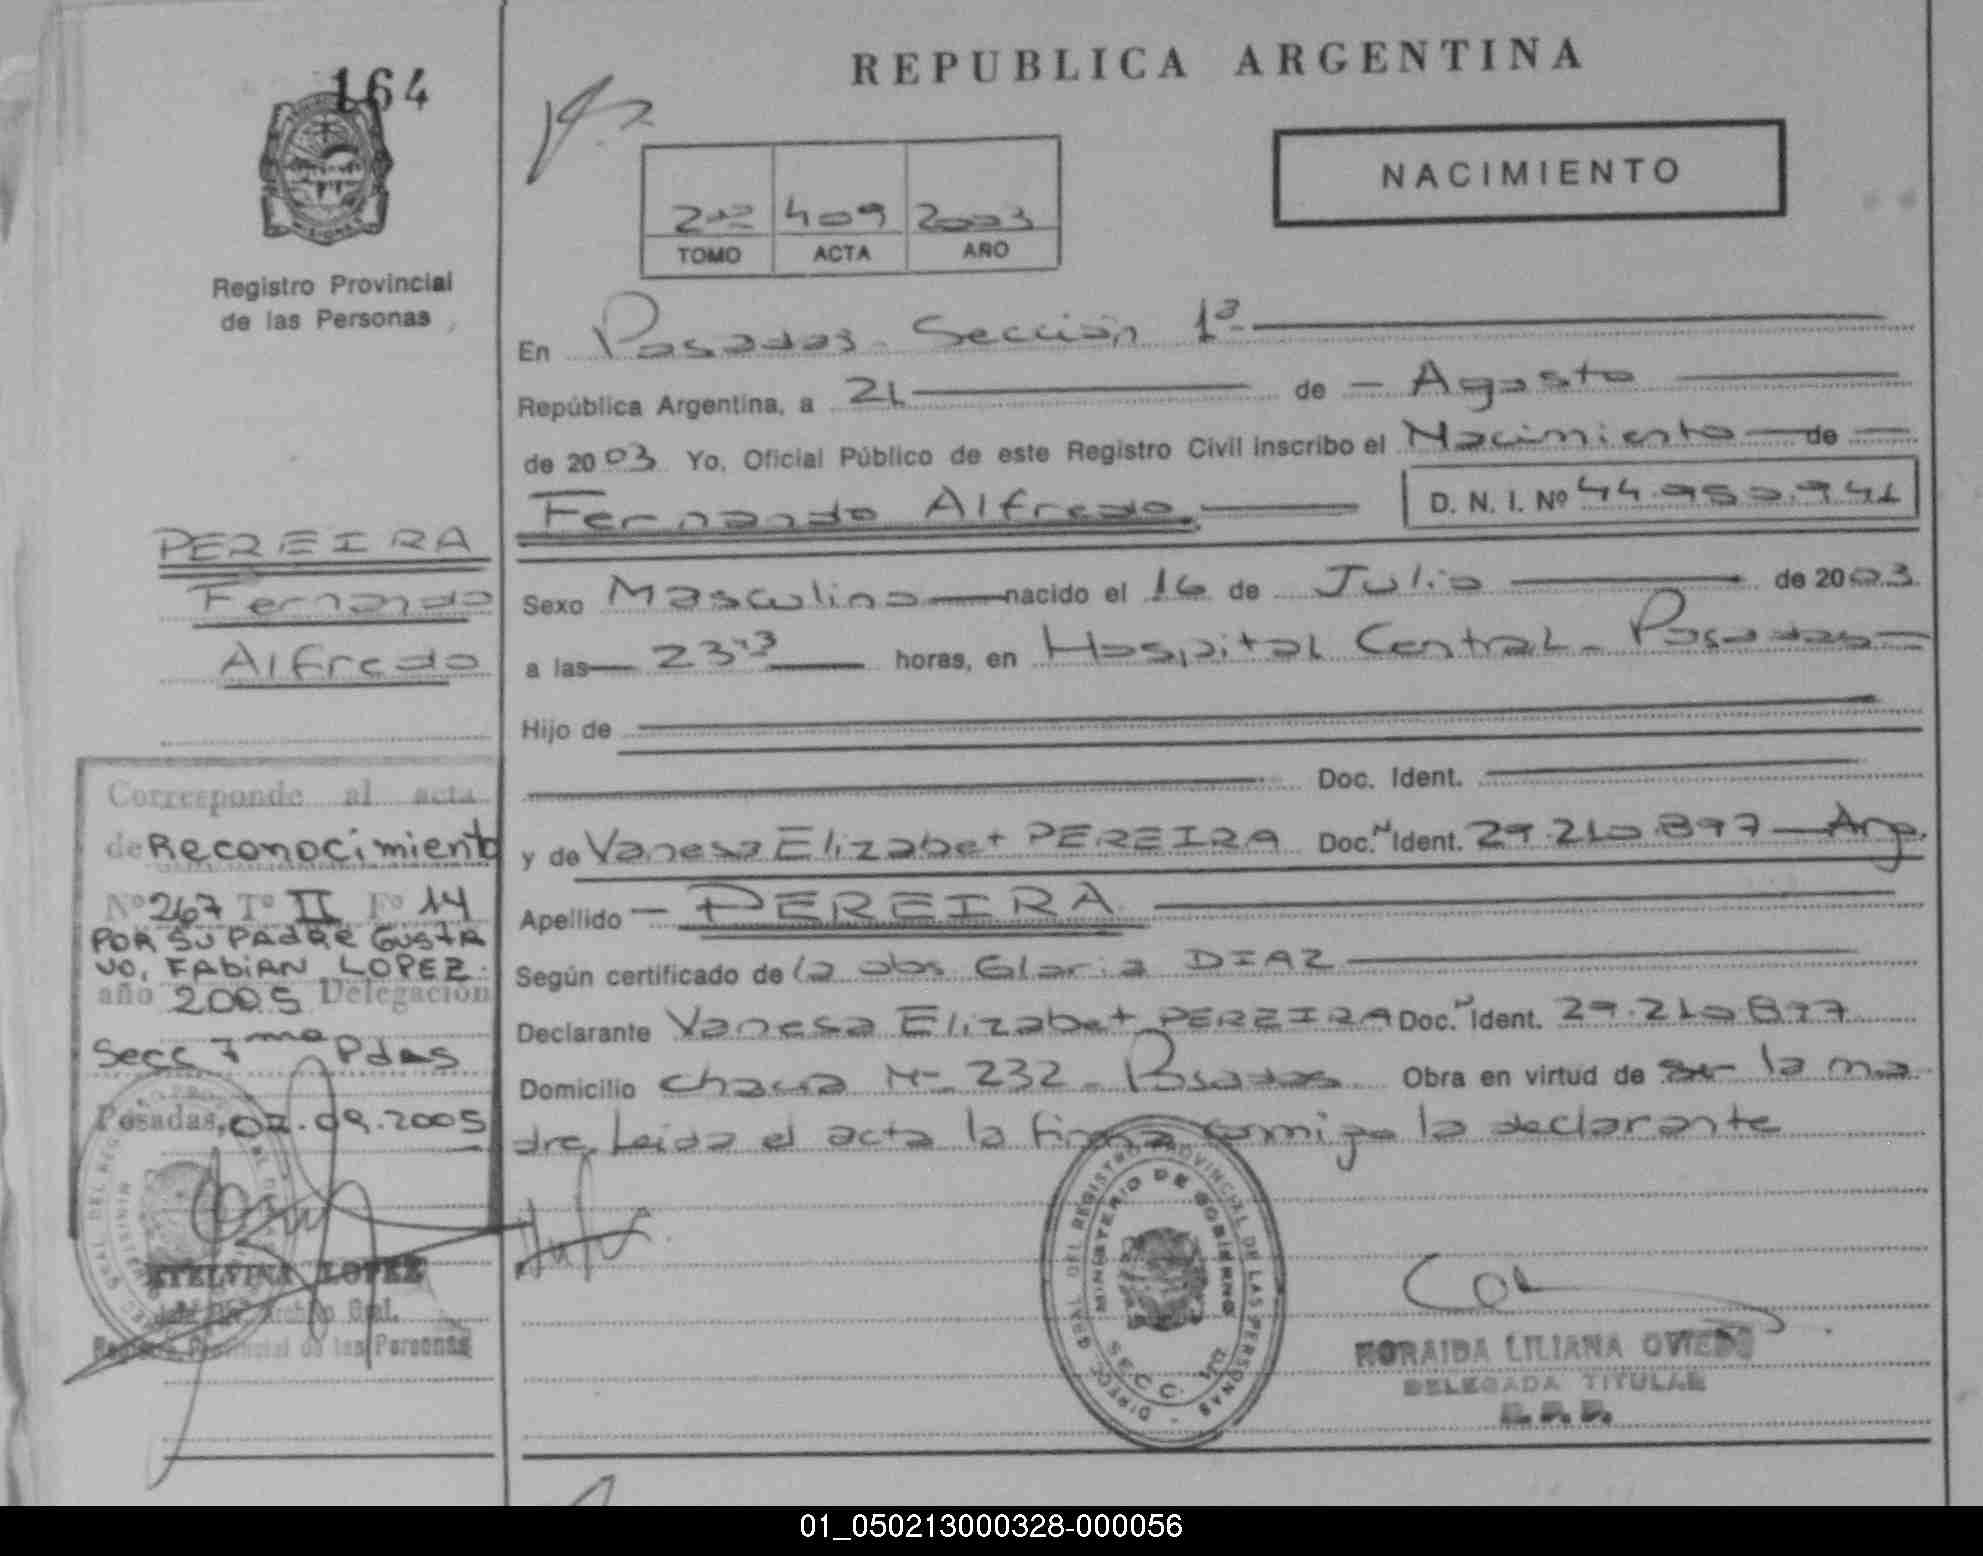 164
Registro Provincial
de las Personas
PEREIRA
Fernando
Alfredo
Corresponde al acta
de Reconocimiento
Nº 267 Tº II Fº 14
POR SU PADRE GUSTA
VO, FABIAN LOPEZ.
año 2005 Delegación
Secc 7ma Pdas
Posadas, 02.09.2005
ETELVINA LOPEZ
Archivo Gral.
Registro Provincial de las Personas
REPUBLICA ARGENTINA
NACIMIENTO
409 2003
TOMO ACTA AÑO
En Posadas - Sección 1ª
República Argentina, a 21 de - Agosto
de 2003 Yo, Oficial Público de este Registro Civil inscribo el Nacimiento - de
Fernando Alfredo D. N. I. Nº 44.950.941
Sexo Masculino nacido el 16 de Julio de 2003
a las horas, en Hospital Central - Posadas
Hijo de
Doc. Ident.
y de Vanesa Elizabet PEREIRA Doc. N Ident. 29.210.897 - Arg.
Apellido - PEREIRA
Según certificado de la obs Gloria DIAZ
Declarante Vanesa Elizabet PEREIRA Doc. N Ident. 29.210.897
Domicilio chacra Nº 232 - Posadas Obra en virtud de ser la ma
dre. Leida el acta la firma conmigo la declarante
DIREC. GRAL. DEL REGISTRO PROVINCIAL DE LAS PERSONAS -
MINISTERIO DE GOBIERNO
SECC.
LILIANA OVIEDO
DELEGADA TITULAR
01_050213000328-000056